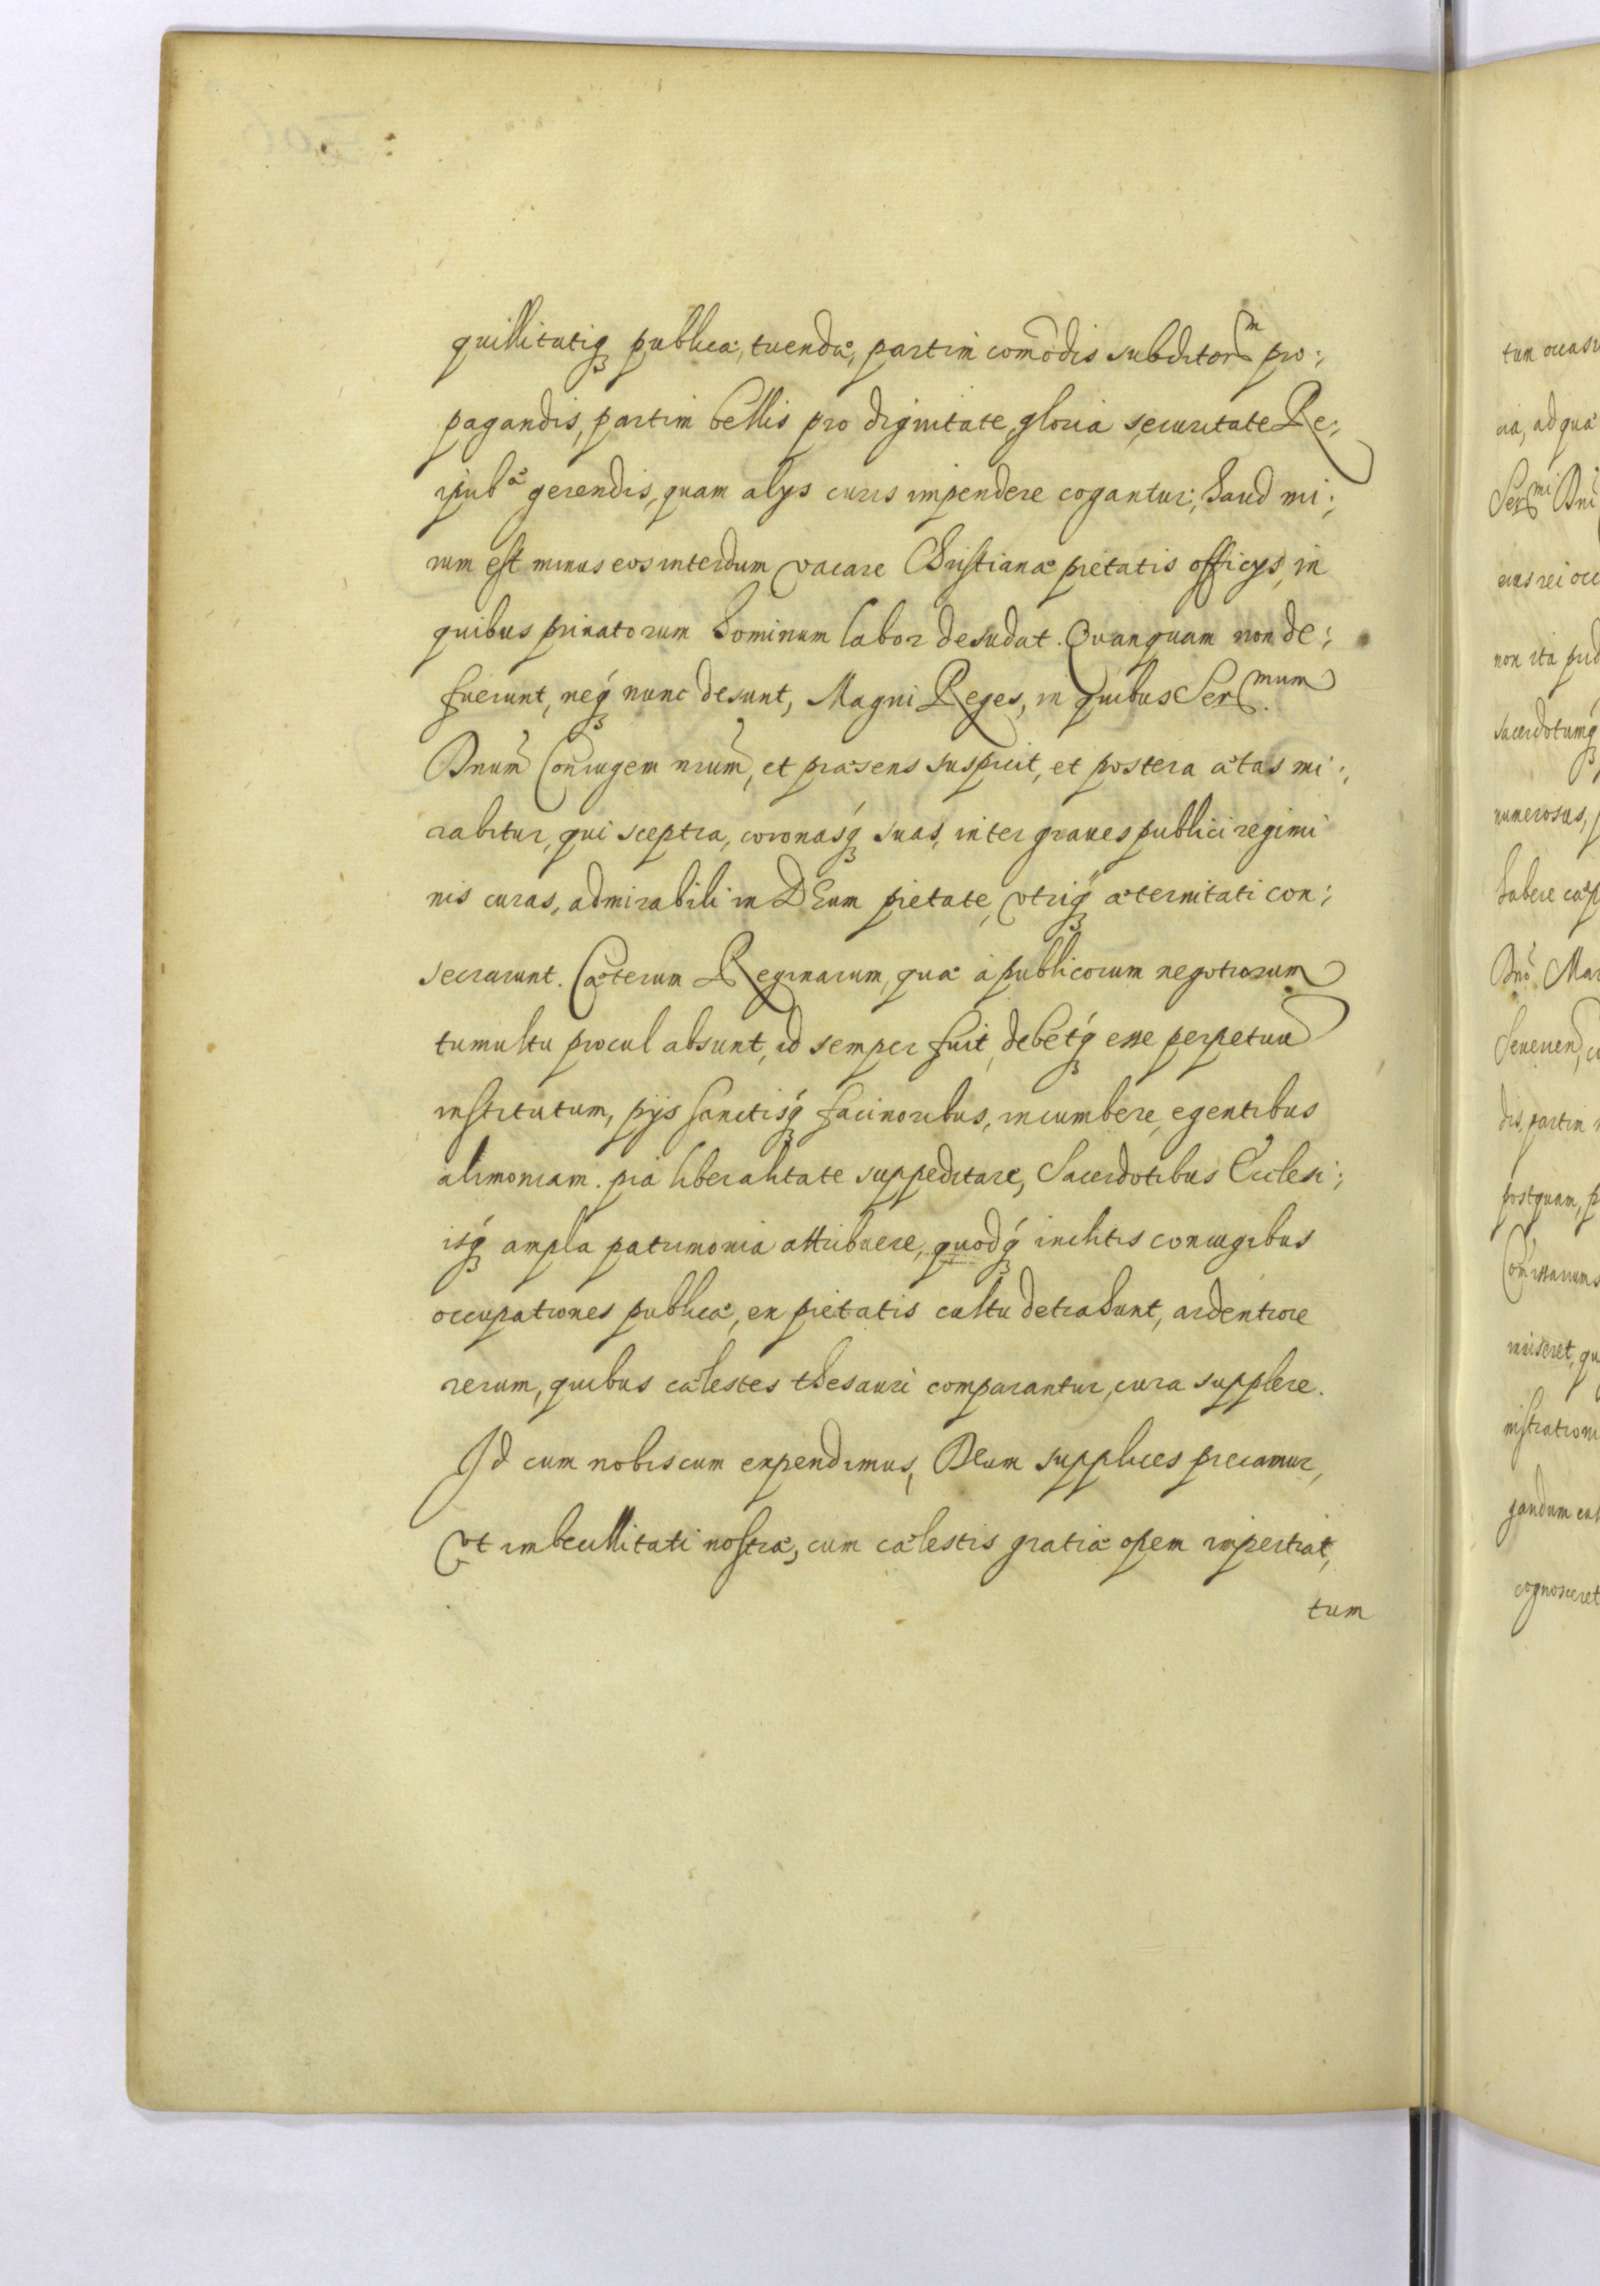 quillitatiq₃ publicæ, tuendæ, partim com̃odis subditorᵐ pro:,
pagandis, partim bellis pro dignitate, gloria, securitate Re:,
ipubᵃᵉ gerendis, quam alijs curis impendere cogantur; haud mi:,
rum est minus eos interdum vacare Christianæ pietatis officijs, in
quibus priuatorum hominum labor desudat. Quanquam non de:,
fuerunt, neq₃ nunc desunt, Magni Reges, in quibus Serᵐᵘᵐ
Dnum̃ Coniugem nrum̃, et præsens suspicit, et postera ætas mi:,
rabitur, qui sceptra, coronasq₃ suas, inter graues publici regimi
nis curas, admirabili in DEum pietate, vtriq₃ æternitati con:,
secrarunt. Cæterum Reginarum, quæ à publicorum negotiorum
tumultu procul absunt, id semper fuit, debetq₃ esse perpetuu
institutum, pijs sanctisq₃ facinoribus, incumbere, egentibus
alimoniam. pia liberalitate suppeditare, Sacerdotibus Ecclesi:,
isq₃ ampla patrimonia attribuere, quodq₃ inclitis coniugibus
occupationes publicæ, ex pietatis cultu detrahunt, ardentiore
rerum, quibus cælestes thesauri comparantur, cura supplere.
Id cum nobiscum expendimus, Deum supplices precamur,
Vt imbecillitati nostræ, cum cælestis gratiæ opem impertiat,
tum